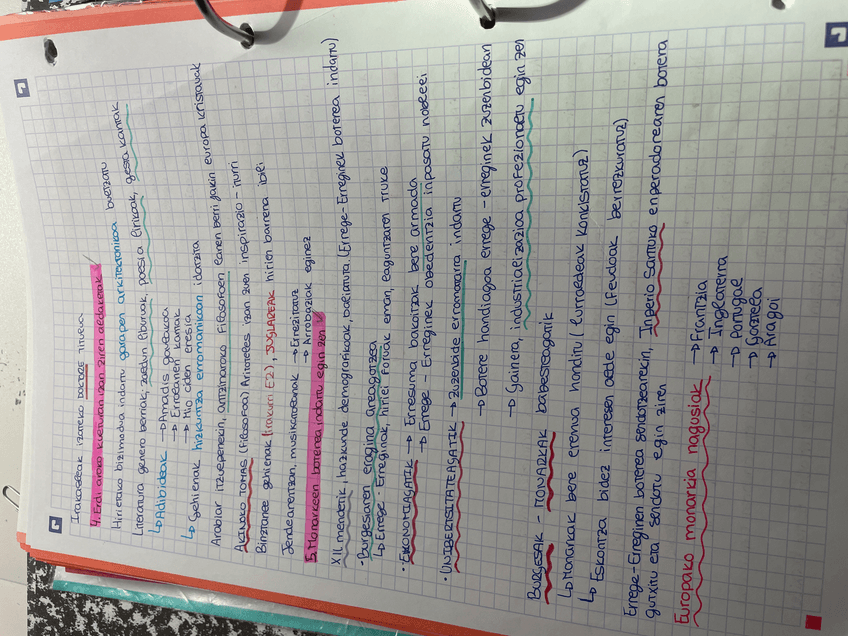 Irakasleak izateko titulua.
4. Erdi aroko kulturan izan ziren aldaketak
Hirietako bizimodua indartu garapen arkitektonikoa bultzatu
Literatura genero berriak, zaldun liburuak, poesia lirikoak, gesta kantak
↳ Adibideak → Amadis Gaulakoa
→ Erroldanen kantak
→ Mio Ciden eresia
↳ Gehienak hizkuntza erromanikoan idatzita
Arabiar itzulpenekin, antzinaroko filosofoen lanen berri jakin europa kristauak
AKINOKO TOMAS (filosofoa) Aristoteles izan zuen inspirazio-iturri
Binztanle gehienak (irakurri EZ), JUGLAREAK hirien barrena ibili
Jendearentzan, musikatresnak → Errezitatuz
→ Arrabaziak eginez
5. Monarkeen boterea indartu egin zen
XII. mendetik, hazkunde demografikoak, baliatuta. (Errege-Erreginek boterea indartu)
· Burgesiaren eragina areagotzea
↳ Errege-Erreginak, hiriei foruak eman, laguntzaren truke
· EKONOMIAGATIK → Erresuma bakoitzak bere armada
→ Errege-Erreginek obedientzia inposatu nobleei
· UNIBERTSITATEAGATIK → Zuzenbide erromatarra indartu
→ Botere handiagoa errege-erreginek zuzenbidean
→ Gainera, industrializazioa profezionaldu egin zen
BURGESAK - MONARKAK babesleagatik
↳ Monarkak bere eremua handitu (lurraldeak konkistatuz)
↳ Eskontza bidez interesen alde egin (Feudoak berrezkuratuz)
Errege-Erreginen boterea sendotzearekin, Inperio Santuko enperadorearen boterea
gutxitu eta sendotu egin ziren
Europako monarkia nagusiak → Frantzia
→ Ingalaterra
→ Portugal
→ Gaztela
→ Aragoi